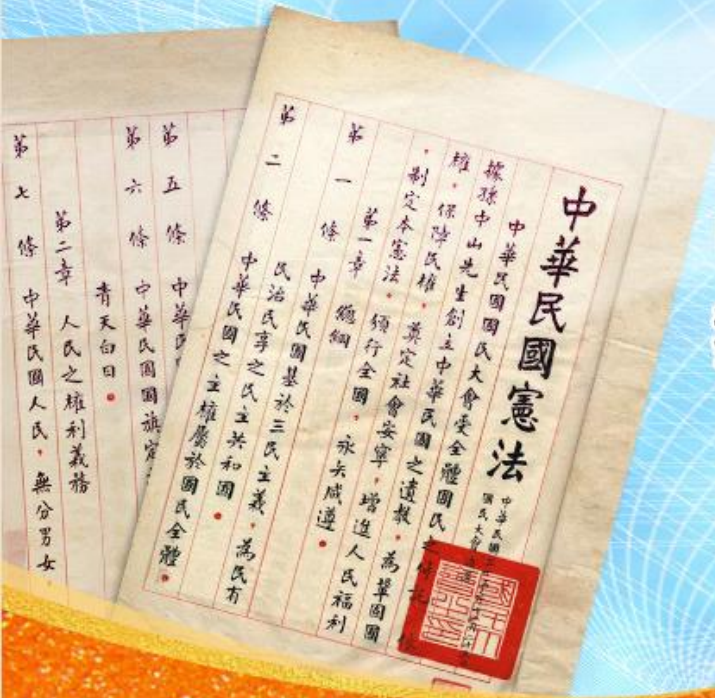 中華民國憲法
中華民國三十五年十二月二十五日
國民大會通過
中華民國國民大會受全體國民之付託，依
據孫中山先生創立中華民國之遺教，為鞏固國
權，保障民權，奠定社會安寧，增進人民福利
，制定本憲法，頒行全國，永矢咸遵。
第一章 總綱
第一條 中華民國基於三民主義，為民有
民治民享之民主共和國。
第二條 中華民國之主權屬於國民全體。
第五條 中華民
第六條 中華民國國旗定
青天白日。
第二章 人民之權利義務
第七條 中華民國人民，無分男女